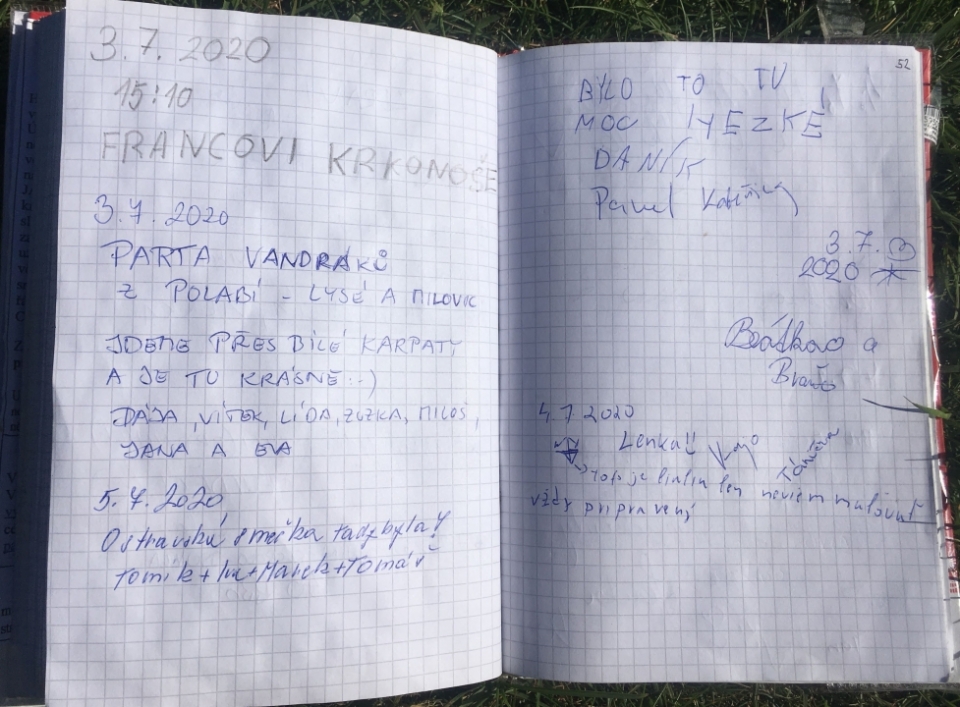 3.7.2020
15:10
FRANCOVI KRKONOŠE
3.7.2020
PARTA VANDRÁKŮ
Z POLABÍ - LYSÉ A MILOVIC
JDEME PŘES BÍLÉ KARPATY
A JE TU KRÁSNĚ :-)
DÁJA, VÍTEK, LÍDA, ZUZKA, MILOŠ,
JANA A EVA
5.7.2020,
Ostravská smečka tady byla!
Tomik + Iva + Marek + Tomáš
52
BYLO TO TU
MOC HEZKÉ
DANÍK
Pavel
3.7.
2020
a
4.7.2020
Lenka!!
Toto je len neviem malovat
vždy pripravený